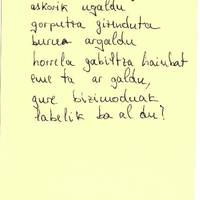 askorik ugaldu
gorputza girinduta
burua argaldu
horrela gabiltza hainbat
eme ta ar galdu,
gure bizimoduak
labelik ba al du?